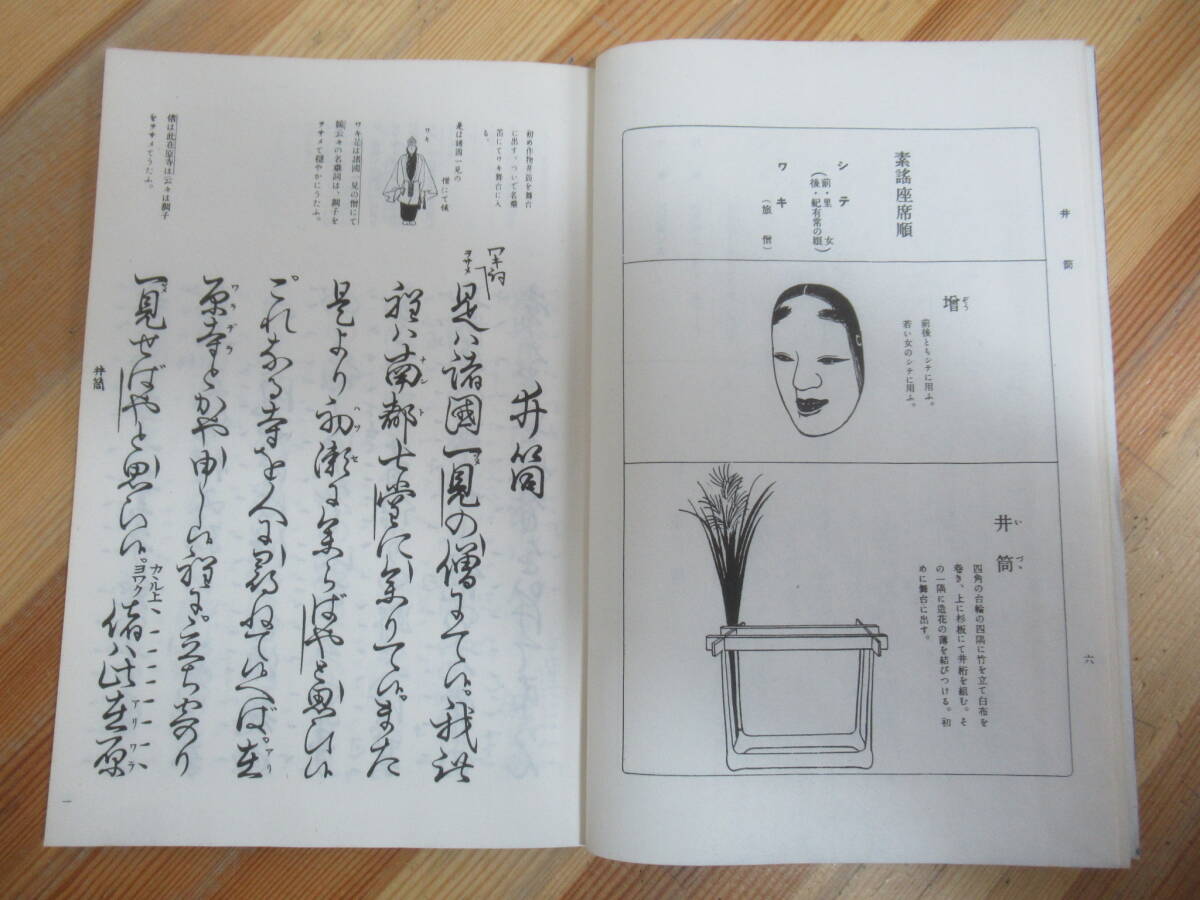 井筒
素謠座席順
シテ
(前・里女
後・紀有常の娘)
ワキ
(旅僧)
増
ぞう
前後ともシテに用ふ。
若い女のシテに用ふ。
井筒
いづゝ
四角の台輪の四隅に竹を立て白布を
巻き、上に杉板にて井桁を組む。そ
の一隅に造花の薄を結びつける。初
めに舞台に出す。
六
初め作物井筒を舞台
に出す。ついで名乗
笛にてワキ舞台に入
る。
是は諸國一見の
僧にて候
ワキ
ワキ是は諸國一見の僧にて
候云々の名乗詞は、調子を
ヲサメて穏やかにうたふ。
偖は此在原寺は云々は調子
をヲサメてうたふ。
井筒
是ハ諸國一見の僧にて候。我此
程ハ南都七堂に參りて候。また
是より初瀬に參らばやと思ひ候
これなる寺を人に尋ねて候へば。在
原寺とかや申し候程に。立ち寄り
一見せばやと思ひ候。
カヽル上
ヨワク
偖ハ此在原
アリ ワラ
井筒
一